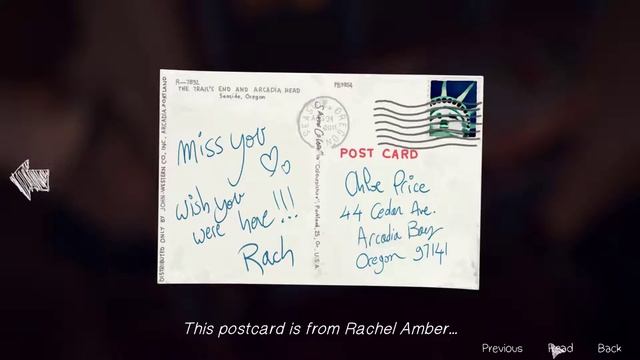 R—7892
THE TRAIL'S END AND ARCADIA HEAD
Seaside, Oregon
Miss you
wish you
were here!!!
Rach
POST CARD
Chloe Price
44 Cedar Ave.
Arcadia Bay
Oregon 97141
DISTRIBUTED ONLY BY JOHN-WESTERN CO., INC. ARCADIA-PORTLAND
This postcard is from Rachel Amber...
Previous
Read
Back